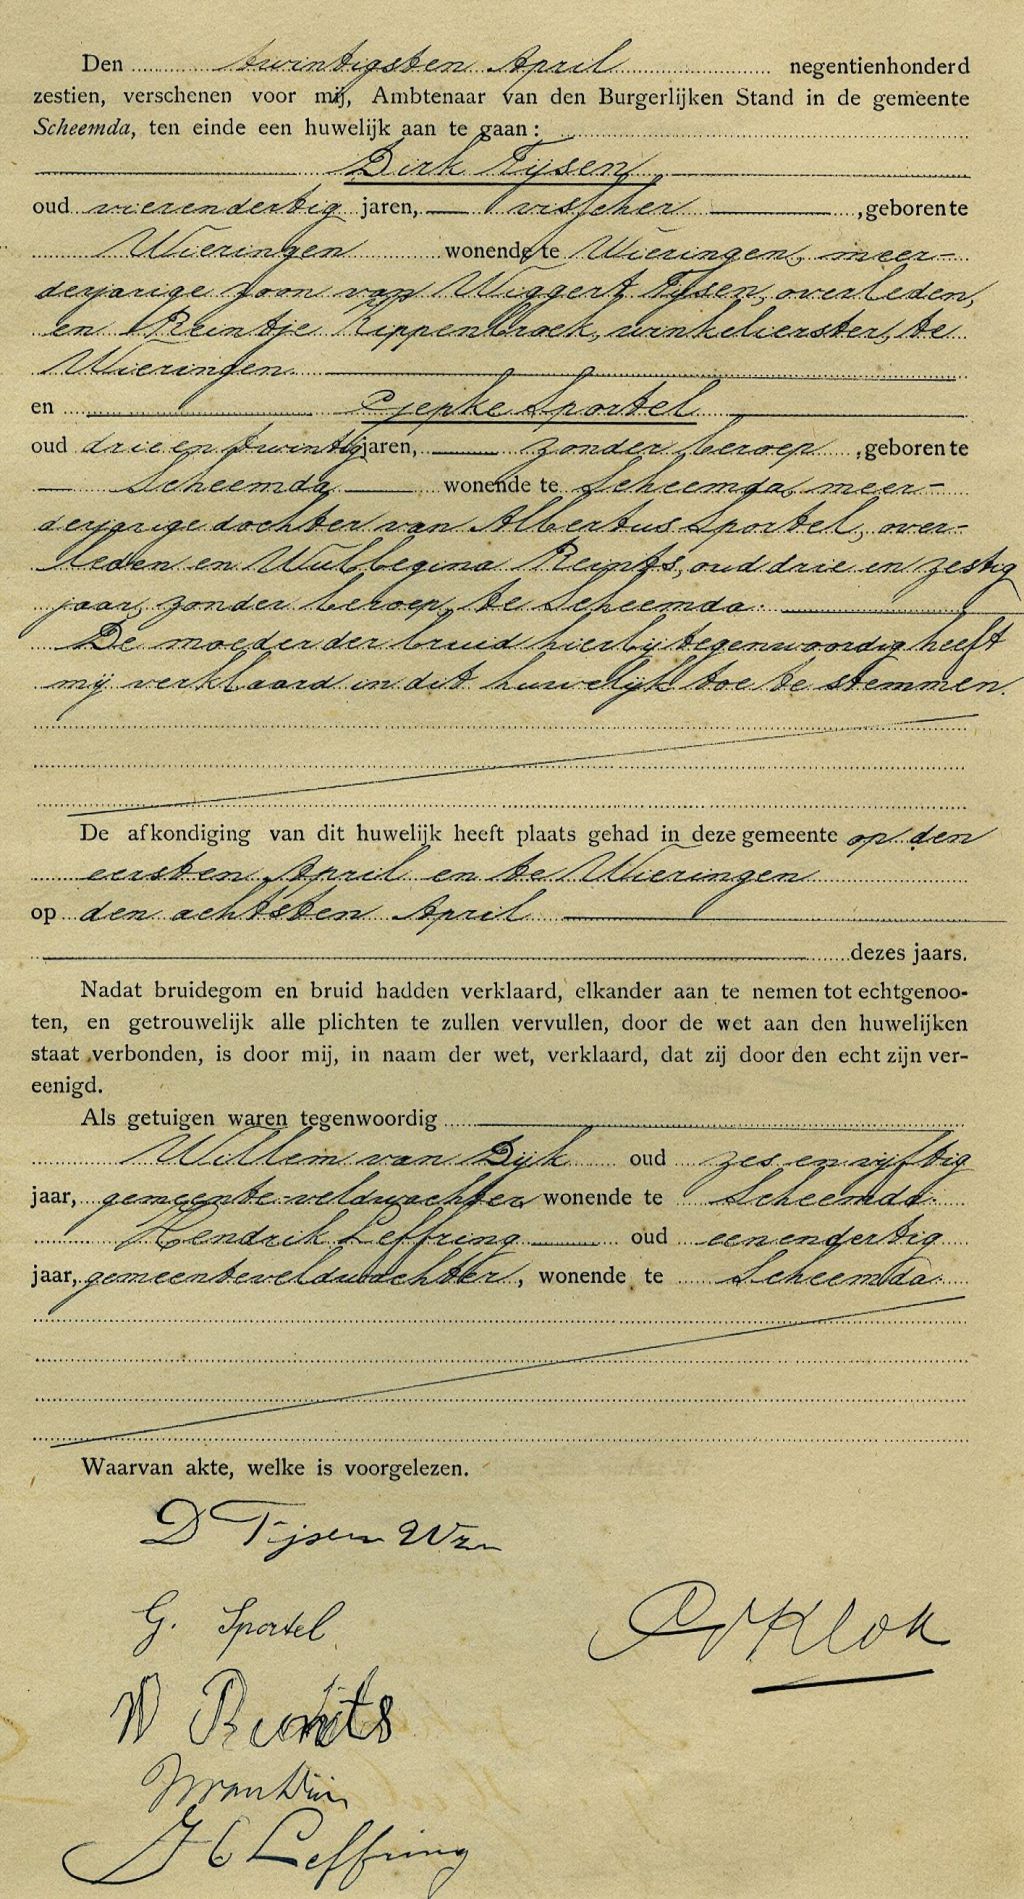 Den twintigsten April negentienhonderd
zestien, verschenen voor mij, Ambtenaar van den Burgerlijken Stand in de gemeente
Scheemda, ten einde een huwelijk aan te gaan:
Dirk Tijsen
oud vierendertig jaren, visscher, geboren te
Wieringen wonende te Wieringen, meer-
derjarige zoon van Wiggert Tijsen, overleden,
en Reintje Kippenbroek, winkelierster, te
Wieringen
en Gjepke Sportel
oud drie en twintig jaren, zonder beroep, geboren te
Scheemda wonende te Scheemda, meer-
derjarige dochter van Albertus Sportel, over-
leden en Wubbegina Reints, oud drie en zestig
jaar, zonder beroep, te Scheemda.
De moeder der bruid hierbij tegenwoordig heeft
mij verklaard in dit huwelijk toe te stemmen.
De afkondiging van dit huwelijk heeft plaats gehad in deze gemeente op den
eersten April en te Wieringen
op den achtsten April
dezes jaars.
Nadat bruidegom en bruid hadden verklaard, elkander aan te nemen tot echtgenoo-
ten, en getrouwelijk alle plichten te zullen vervullen, door de wet aan den huwelijken
staat verbonden, is door mij, in naam der wet, verklaard, dat zij door den echt zijn ver-
eenigd.
Als getuigen waren tegenwoordig
Willem van Dijk oud zes en vijftig
jaar, gemeente-veldwachter wonende te Scheemda.
Hendrik Leffring oud eenendertig
jaar, gemeenteveldwachter, wonende te Scheemda.
Waarvan akte, welke is voorgelezen.
D Tijsen Wzn
G. Sportel
Klok
W Reints
H Leffring